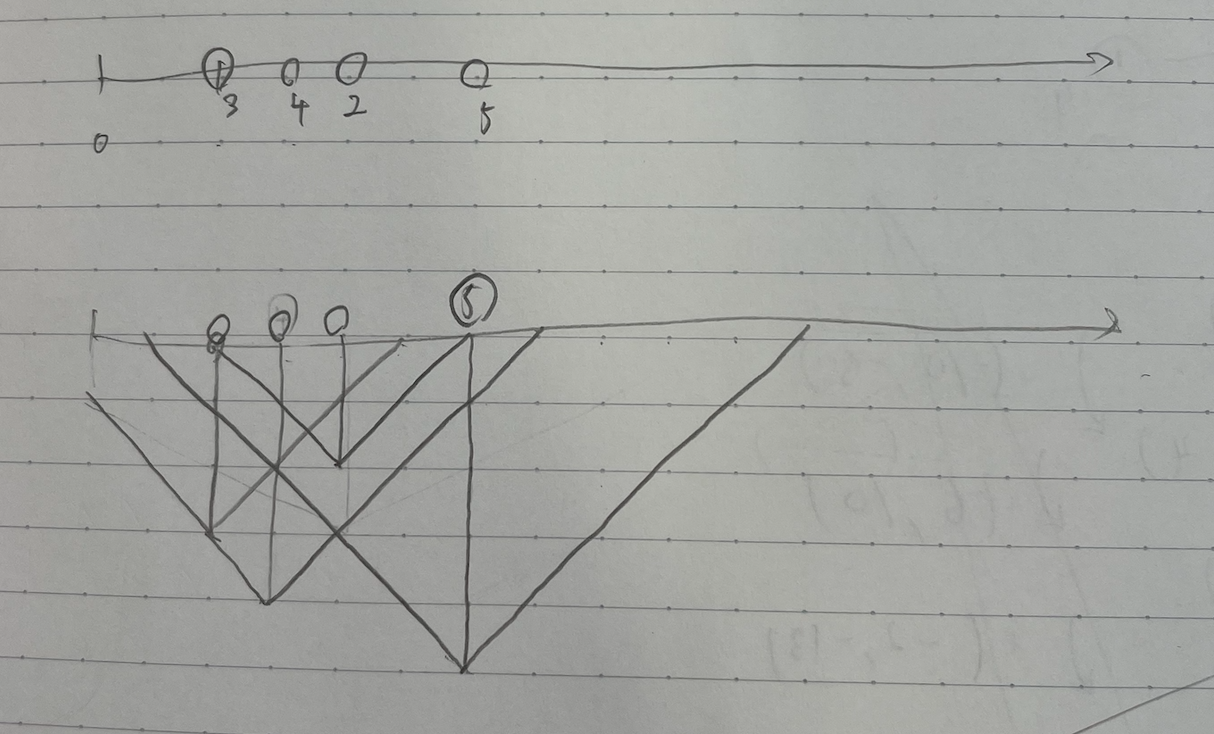 3 4 2 5
0
5